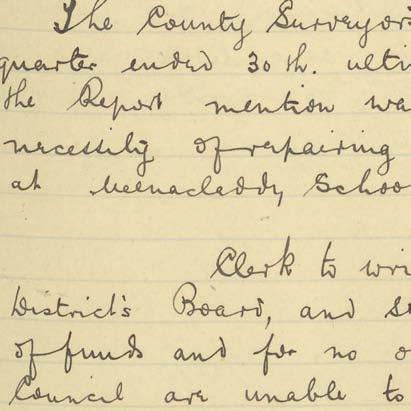 The County Surveyor
quarter ended 30th. ulti
the Report mention wa
necessity of repairing
at Meenacladdy Schoo
Clerk to wri
District's Board, and s
of funds and for no o
Council are unable to